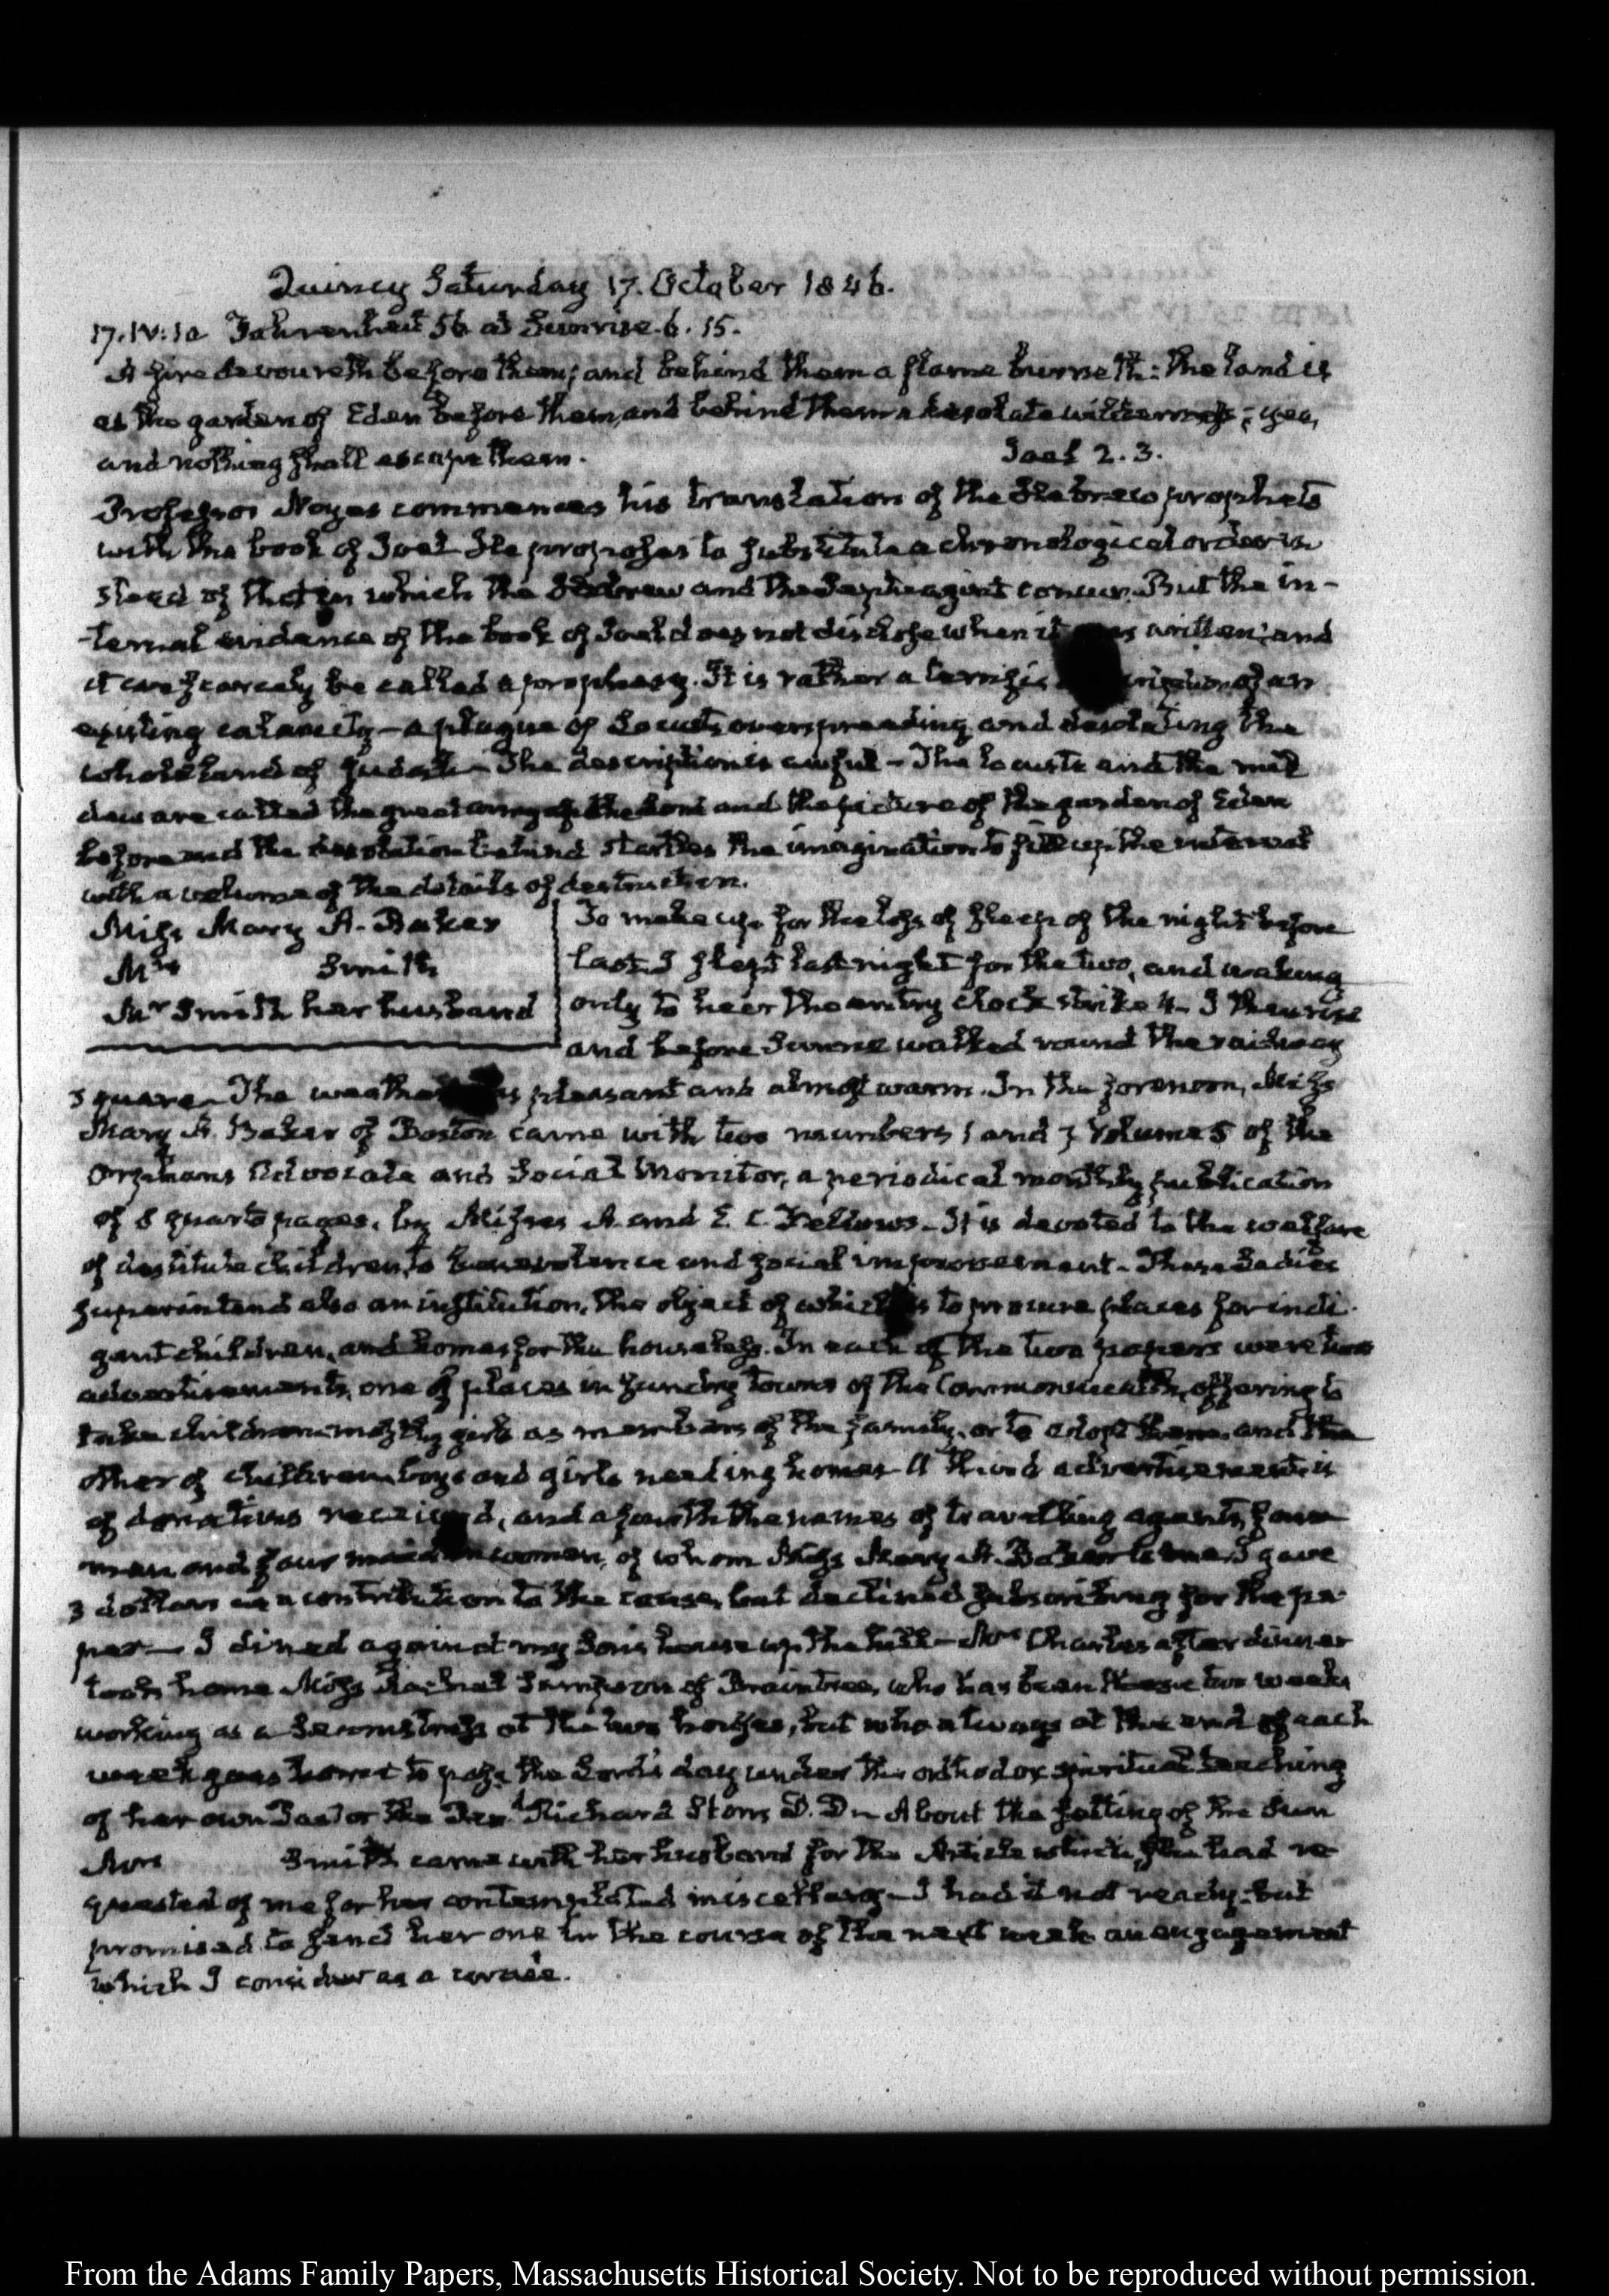 Quincy Saturday 17. October 1846.
17. IV:10 Fahrenheit 56 at Sunrise. 6. 15.
A fire devoureth before them; and behind them a flame burneth: the land is
as the garden of Eden before them, and behind them a desolate wilderness; yea,
and nothing shall escape them. Joel 2. 3.
Professor Noyes commences his translation of the Hebrew prophets
with the book of Joel He proposes to substitute a chronological order in
stead of that in which the Hebrew and the Septuagint concur. But the in-
-ternal evidence of the book of Joel does not disclose when it was written; and
it can scarcely be called a prophesy. It is rather a terrific description of an
existing calamity – a plague of Locusts overspreading and desolating the
whole land of Judah – The description is awful – The locusts and the mil
dew are called the great army of the Lord and the picture of the garden of Eden
before and the desolation behind startles the imagination to fill up the interval
with a volume of the details of destruction.
Miss Mary A. Baker
Mrs Smith
Mr Smith her husband
To make up for the loss of sleep of the night before
last I slept last night for the two, and waking
only to hear the entry clock strike 4 – I then rose
and before Sunrise walked round the railway
square – The weather was pleasant and almost warm. In the forenoon, Miss
Mary A. Baker of Boston came with two numbers 1 and 7 Volume 5 of the
Orphans Advocate and Social Monitor, a periodical monthly publication
of 8 quarto pages, by Misses A. and E. C. Fellows – It is devoted to the welfare
of destitute children, to benevolence and social improvement – These Ladies
superintend also an institution, the object of which is to procure places for indi-
gent children, and homes for the houseless. In each of the two papers were two
advertisements, one of places in sundry towns of the Commonwealth, offering to
take children – mostly girls as members of the family, or to adopt them, and the
other of children boys and girls needing homes – A third advertisement is
of donations received, and a fourth the names of travelling agents, four
men and four maiden women, of whom Miss Mary A. Baker is one. I gave
3 dollars as a contribution to the cause, but declined subscribing for the pa-
per – I dined again at my Son's house up the hill – Mrs Charles after dinner
took home Miss Rachel Simpson of Braintree, who has been these two weeks
working as a Seamstress at the two houses, but who always at the end of each
week goes home to pass the Lord's day under the orthodox spiritual teaching
of her own Pastor the Revd. Richard Storrs D. D – About the setting of the Sun
Mrs Smith came with her husband for the Article which she had re-
quested of me for her contemplated miscellany – I had it not ready; but
promised to send her one in the course of the next week an engagement
which I consider as a